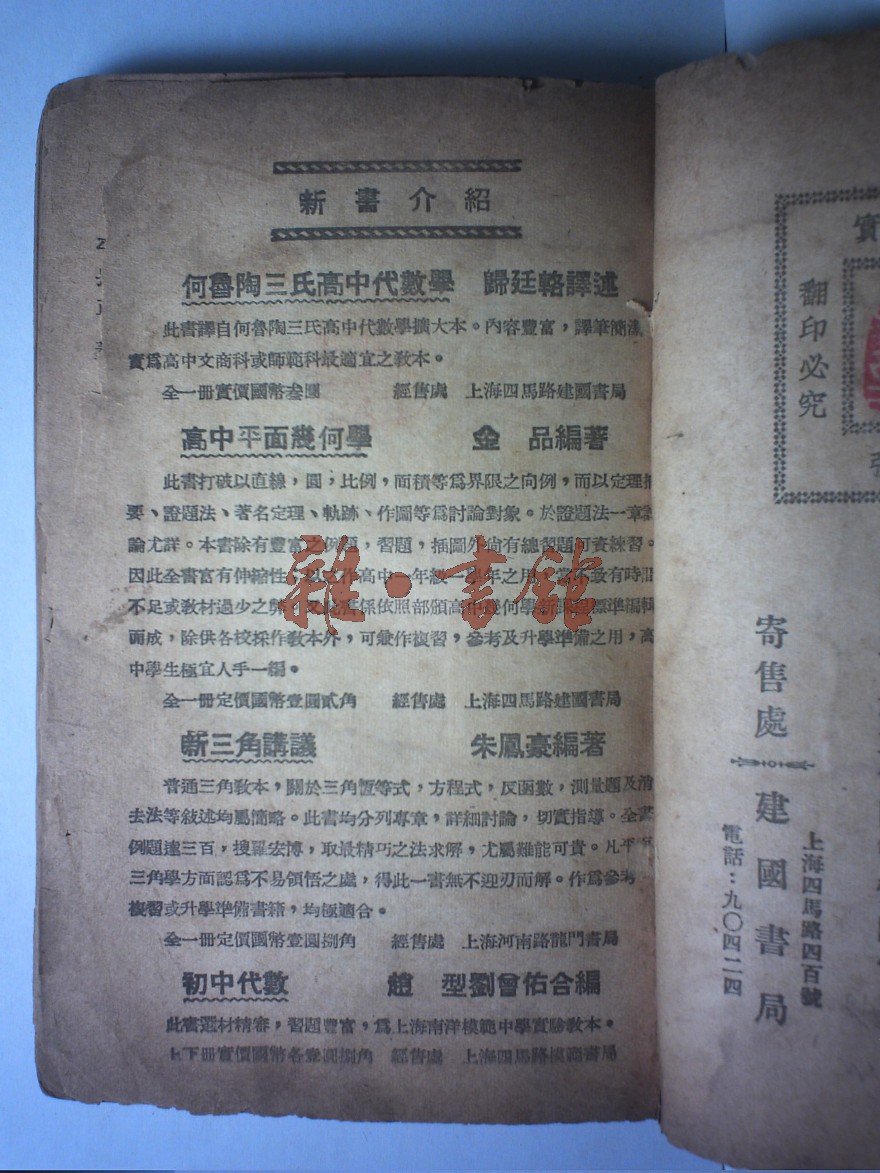 新書介紹
何魯陶三氏高中代數學 歸廷輅譯述
此書譯自何魯陶三氏高中代數學擴大本。內容豐富,譯筆簡潔
實爲高中文商科或師範科最適宜之敎本。
全一册實價國幣叁圓 經售處 上海四馬路建國書局
高中平面幾何學 金 品編著
此書打破以直線,圓,比例,面積等爲界限之向例,而以定理
要、證題法、著名定理、軌跡、作圖等爲討論對象。於證題法一章
論尤詳。本書除有豐富之例題,習題,插圖外尚有總習題可資練習。
因此全書富有伸縮性,以之作高中一年級一學年之用,當不致有時
不足或敎材過少之弊。又此書係依照部頒高中幾何學新課程標準編輯
而成,除供各校採作敎本外,可兼作複習,參考及升學準備之用,高
中學生極宜人手一編。
全一册定價國幣壹圓貳角 經售處 上海四馬路建國書局
新三角講議 朱鳳豪編著
普通三角敎本,關於三角恆等式,方程式,反函數,測量題及消
去法等敘述均屬簡略。此書均分列專章,詳細討論,切實指導。全書
例題達三百,搜羅宏博,取最精巧之法求解,尤屬難能可貴。凡平
三角學方面認爲不易領悟之處,得此一書無不迎刃而解。作爲參考
複習或升學準備書籍,均極適合。
全一册定價國幣壹圓捌角 經售處 上海河南路龍門書局
初中代數 趙 型劉曾佑合編
此書選材精審,習題豐富,爲上海南洋模範中學實驗敎本。
上下册實價國幣各壹圓捌角 經售處 上海四馬路模範書局
雜·書館
實
翻印必究
寄售處 建國書局
上海四馬路四百號
電話:九〇四二四